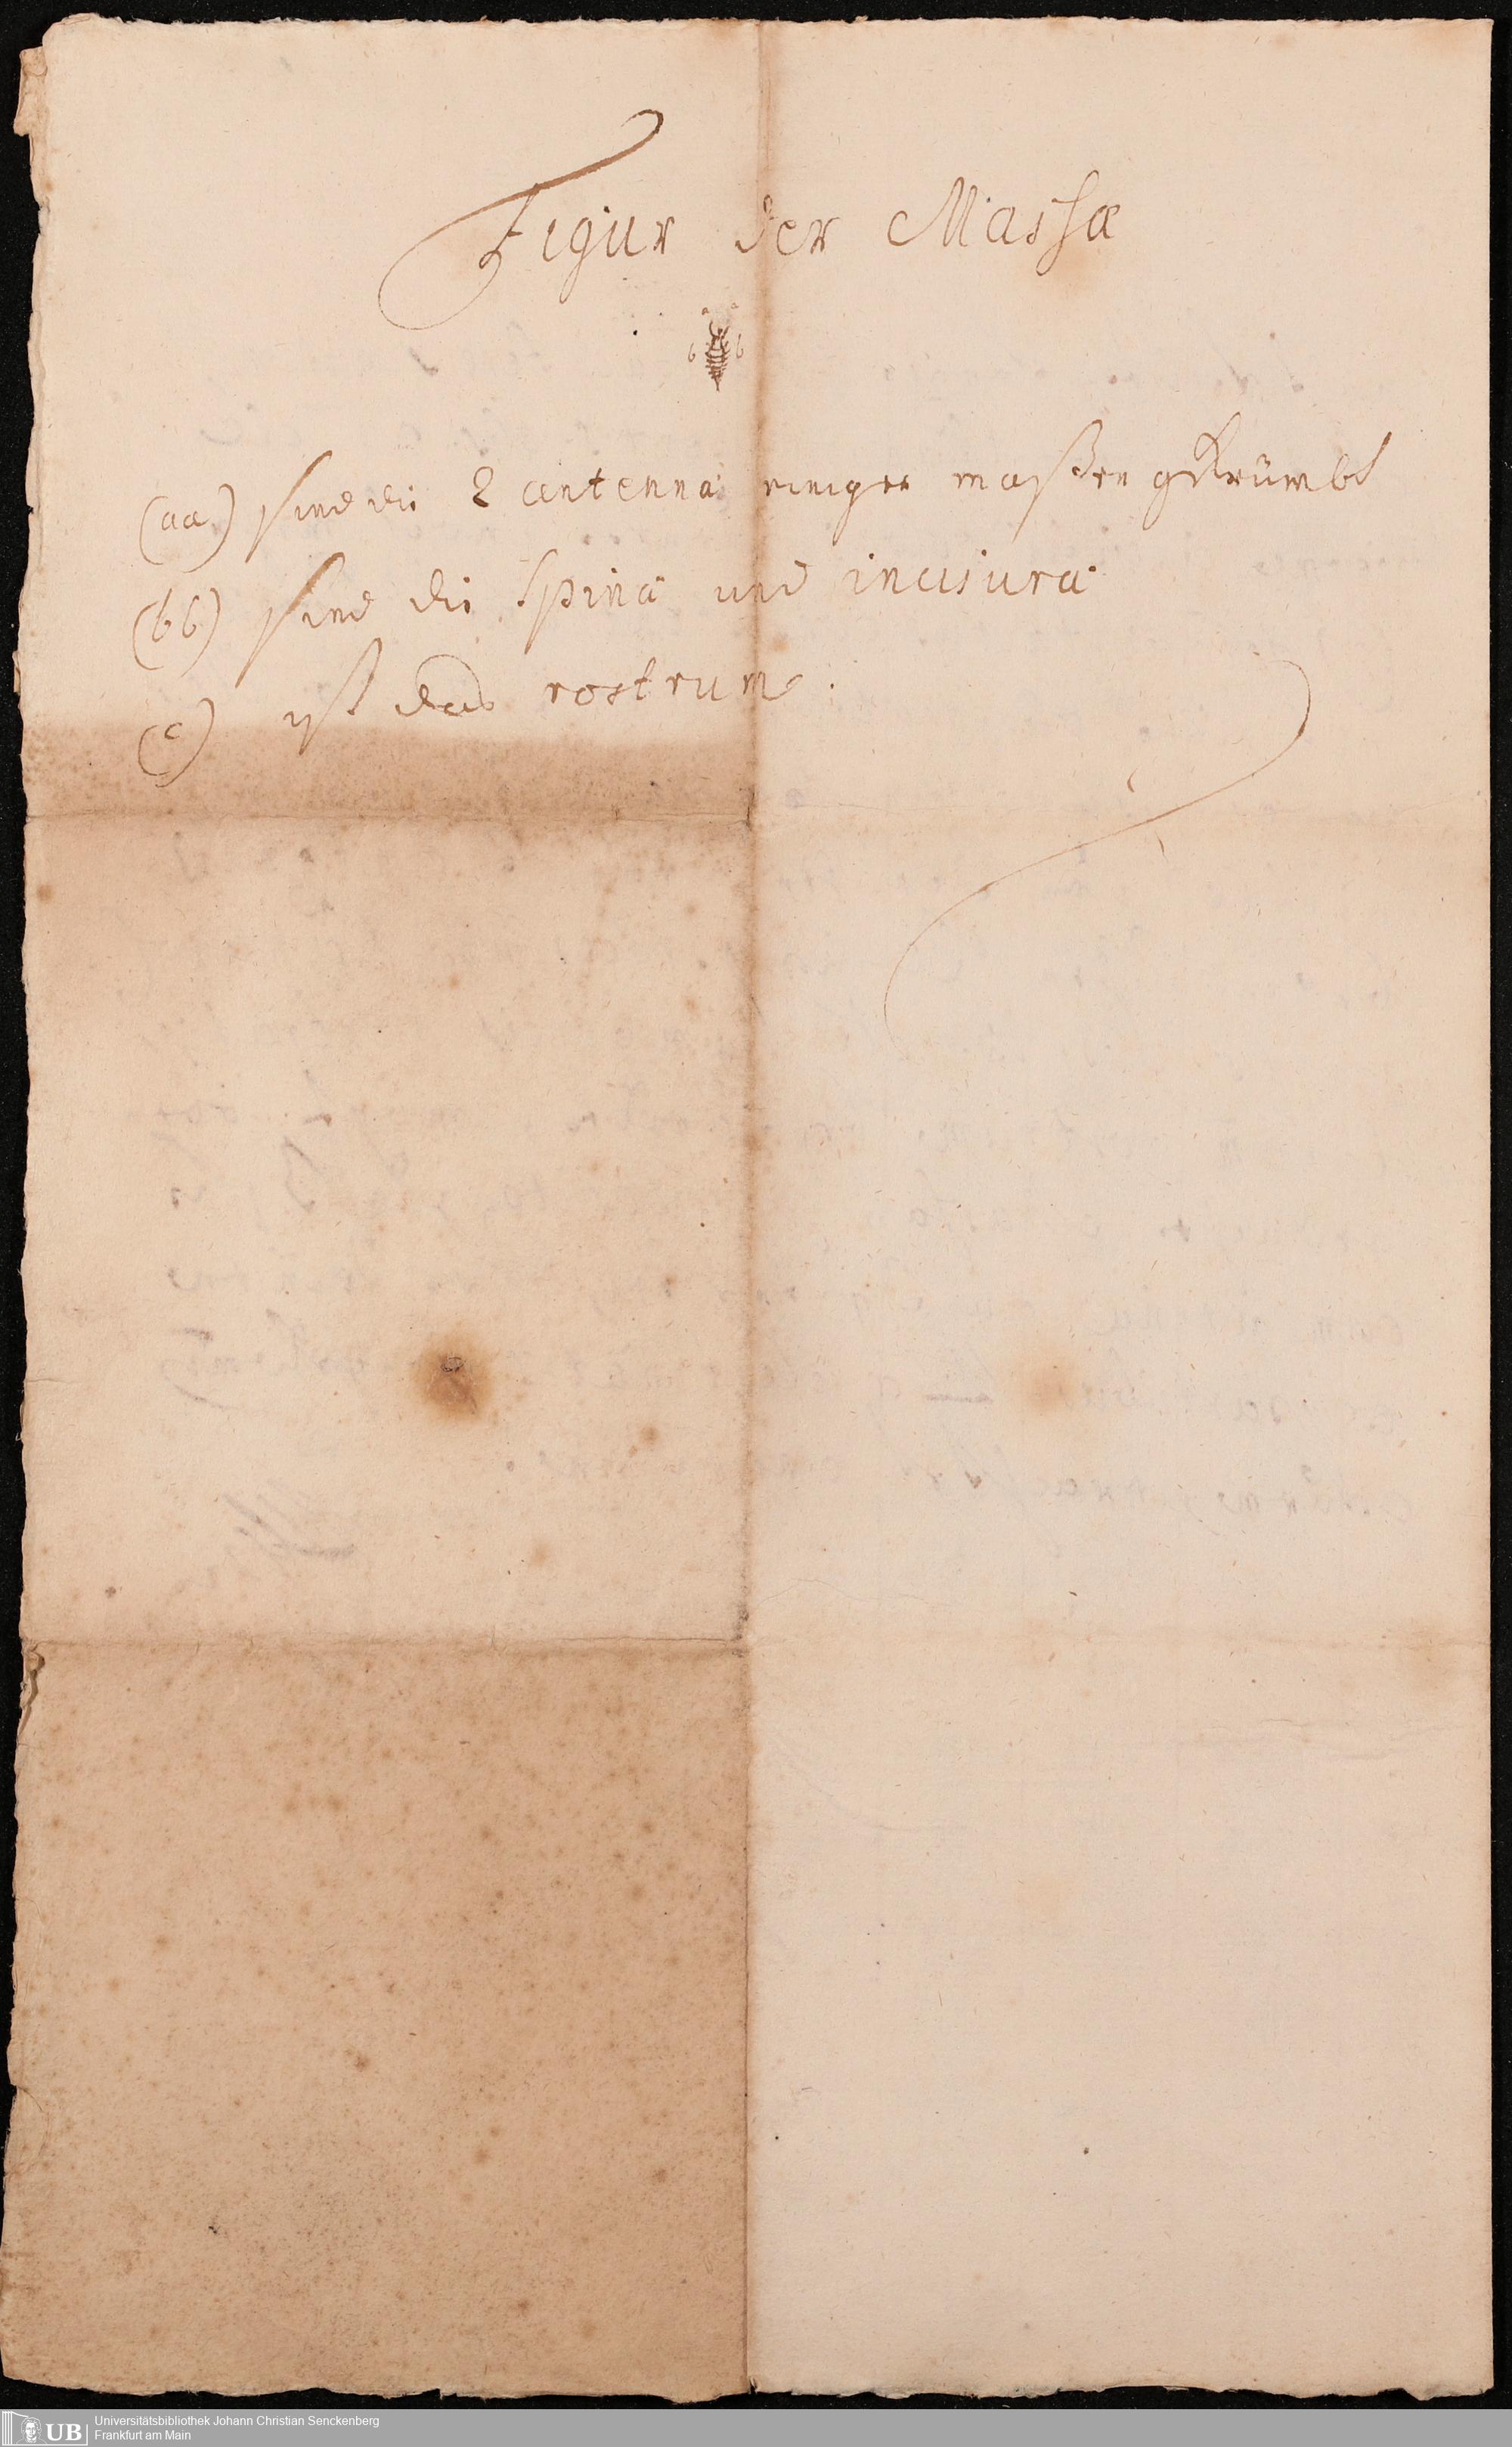 Figur der Massæ
a a
b b
(aa) sind die 2 antennæ einiger maßen gekrümbt
(bb) sind die Spinæ und incisuræ
(c) ist das rostrum.
UB Universitätsbibliothek Johann Christian Senckenberg
Frankfurt am Main